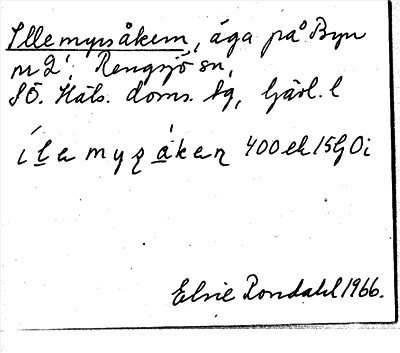 Illemyrsåkern, äga på Byn
nr 2, Rengsjö sn,
SÖ. Häls. doms. tg, Gävl. l
í l e m y ʂ å k e ɳ 400 ek 15G0i
Elsie Rondahl 1966.